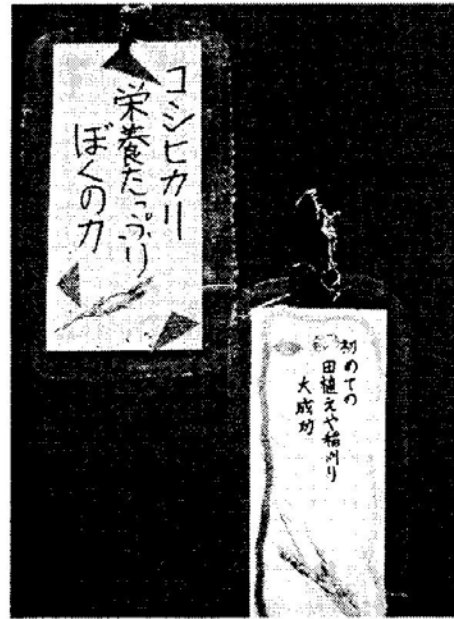 コシヒカリ
栄養たっぷり
ぼくの力
初めての
田植えや稲刈り
大成功